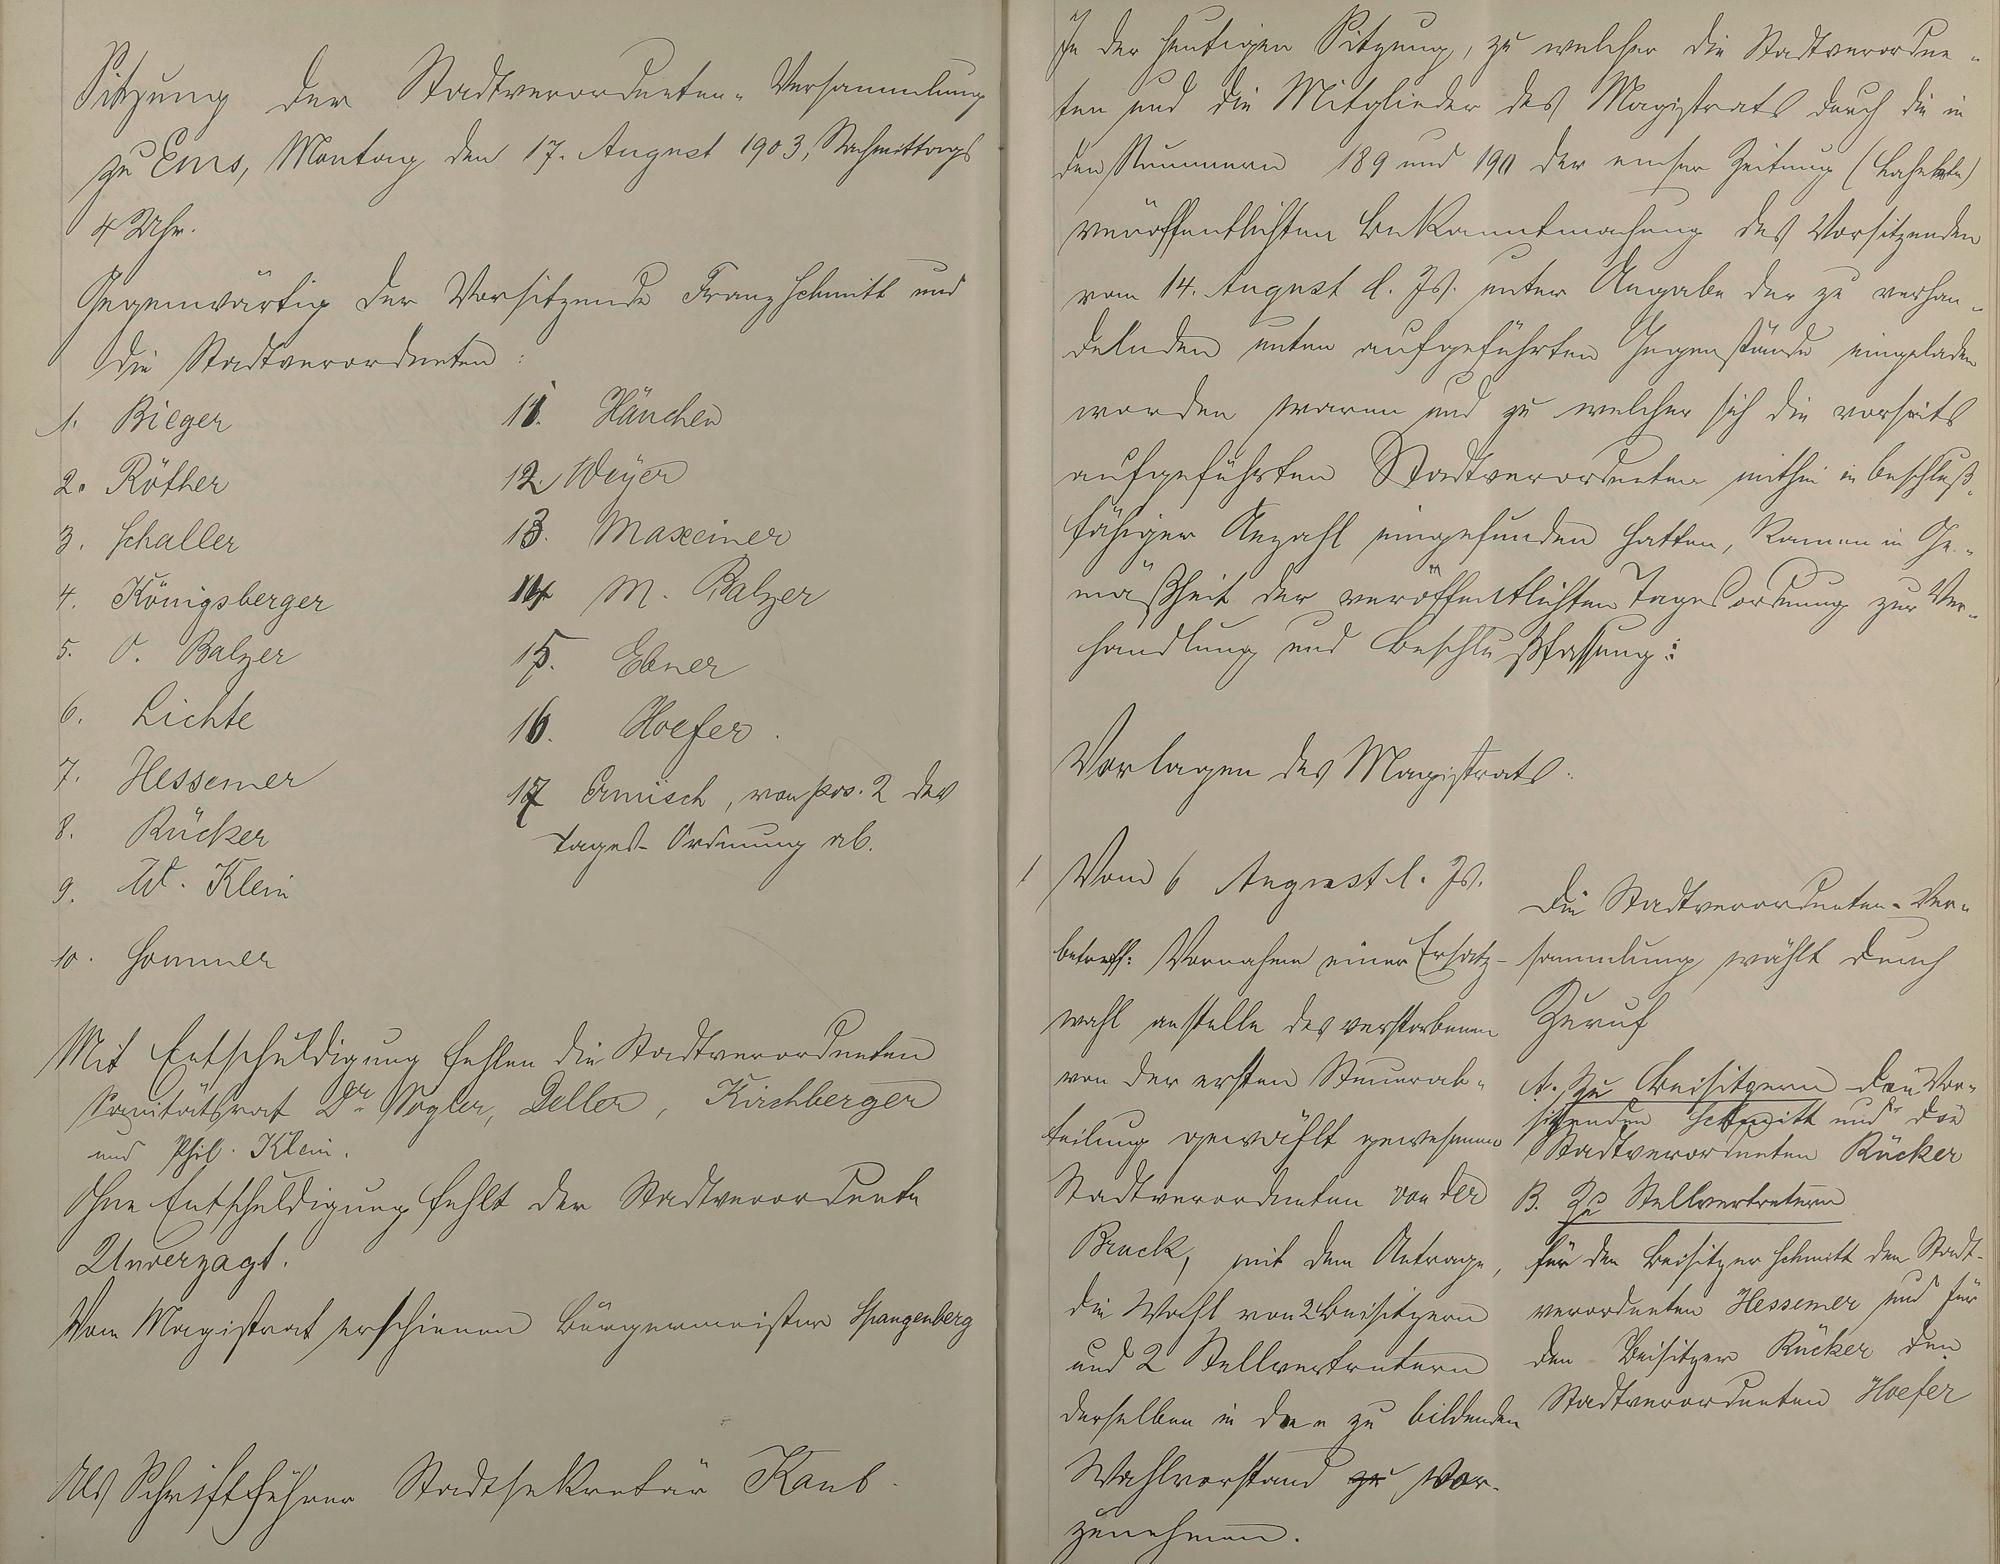 Sitzung der Stadtverordneten-Versammlung
zu Ems, Montag den 17. August 1903, Nachmittags
4 Uhr.
Gegenwärtig der Vorsitzende Franz Schmitt und
die Stadtverordneten:
1. Bieger
2. Röther
3. Schaller
4. Königsberger
5. O. Balzer
6. Lichte
7. Hessemer
8. Rücker
9. W. Klein
10. Sommer
11. Hänchen
12. Weyer
13. Maxeiner
14 M. Balzer
15. Ebner
16. Hoefer.
17 Ermisch, von pos. 2 der
Tages-Ordnung ab.
Mit Entschuldigung fehlen die Stadtverordneten
Sanitätsrat Dr. Vogler, Deller, Kirchberger
und Phil. Klein.
Ohne Entschuldigung fehlt der Stadtverordnete
Unverzagt.
Vom Magistrat erschienen Bürgermeister Spangenberg
Als Schriftführer Stadtsekretär Kaub.
In der heutigen Sitzung, zu welcher die Stadtverordne-
ten und die Mitglieder des Magistrats durch die in
den Nummern 189 und 190 der emser Zeitung (Lahnbote)
veröffentlichten Bekanntmachung des Vorsitzenden
vom 14. August l. Js. unter Angabe der zu verhan-
delnden unten aufgeführten Gegenstände eingeladen
worden waren und zu welcher sich die vorseits
aufgeführten Stadtverordneten mithin in beschluß-
fähiger Anzahl eingefunden hatten, kamen in Ge-
mäßheit der veröffentlichten Tagesordnung zur Ver-
handlung und Beschlußfassung:
Vorlagen des Magistrats.
1 Vom 6 August l. Js.
betreff: Vornahme einer Ersatz-
wahl anstelle des verstorbenen
von der ersten Steuerab-
teilung gewählt gewesenen
Stadtverordneten von der
Bruck, mit dem Antrage,
die Wahl von 2 Beisitzern
und 2 Stellvertretern
derselben in den zu bildenden
Wahlvorstand zu vor-
zunehmen.
Die Stadtverordneten-Ver-
sammlung wählt durch
Zuruf
A. Zu Beisitzern den Vor-
sitzenden Schmitt und den
Stadtverordneten Rücker
B. Zu Stellvertretern
für den Beisitzer Schmitt den Stadt-
verordneten Hessemer und für
den Beisitzer Rücker den
Stadtverordneten Hoefer